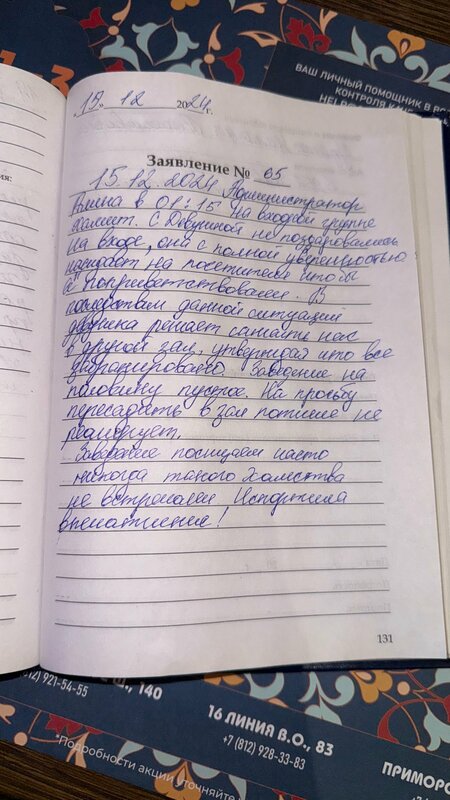 1
3
ВАШ ЛИЧНЫЙ ПОМОЩНИК В
КОНТРОЛЯ
ия:
"15" 12 2024г.
Заявление № 65
15.12.2024 Администратор
в 01:15 на входной группе
хамит. С Девушкой не поздоровались
на входе, она с полной уверенностью
на посетителя чтобы
поприветствовали. В
последствии данной ситуации
девушка решает сажать нас
в другой зал, утверждая что все
забронировано. Заведение на
половину пустое. На просьбу
пересадить в зал потише не
реагирует.
Заведение посещаем часто
никогда такого хамства
не встречали Испортила
впечатление!
131
(812) 921-54-55
., 140
16 ЛИНИЯ В.О., 83
+7 (812) 928-33-83
ПРИМОРС
*Подробности акции уточняйте